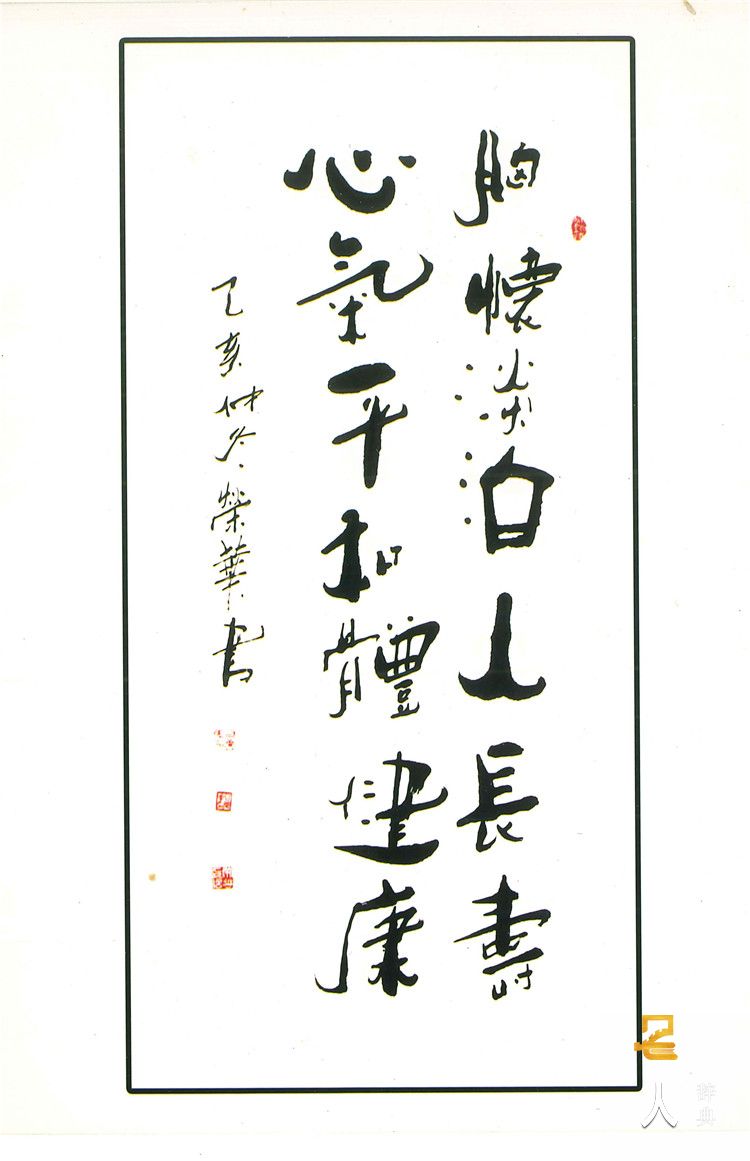 胸懷淡泊人長壽
心氣平和體健康
己亥仲冬榮華書
名
人
辞典